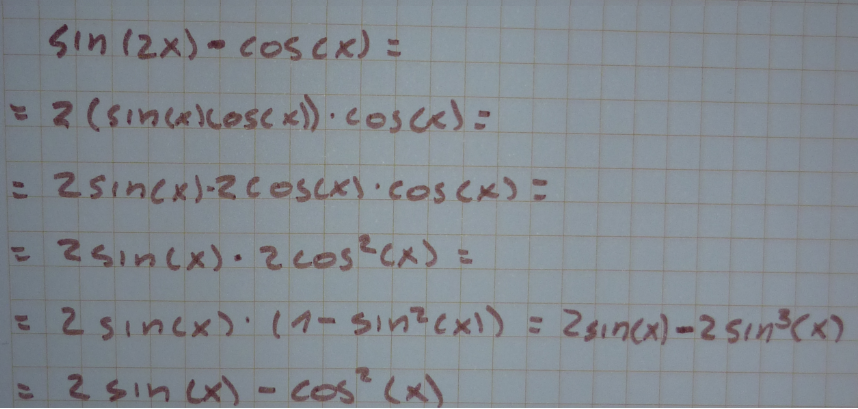 sin(2x)-cos(x)=
= 2(sin(x)cos(x))·cos(x)=
= 2sin(x)·2cos(x)·cos(x)=
= 2sin(x)·2cos²(x)=
= 2sin(x)·(1-sin²(x))=2sin(x)-2sin³(x)
= 2sin(x)-cos²(x)